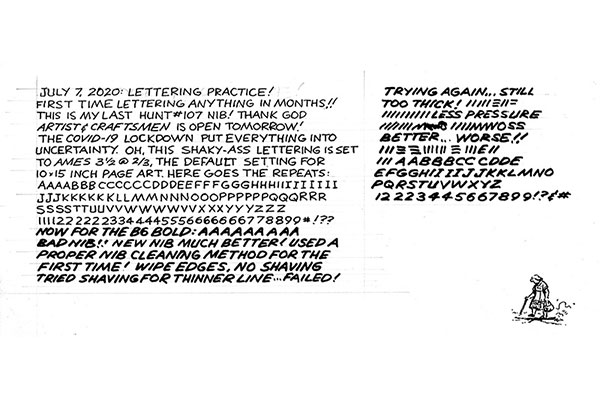 JULY 7, 2020: LETTERING PRACTICE!
FIRST TIME LETTERING ANYTHING IN MONTHS!!
THIS IS MY LAST HUNT#107 NIB! THANK GOD
ARTIST & CRAFTSMEN IS OPEN TOMORROW!
THE COVID-19 LOCKDOWN PUT EVERYTHING INTO
UNCERTAINTY. OH, THIS SHAKY-ASS LETTERING IS SET
TO AMES 3½ @ 2/3, THE DEFAULT SETTING FOR
10×15 INCH PAGE ART. HERE GOES THE REPEATS:
AAAABBBCCCCCCDDDEEFFFGGGHHHIIIIIIII
JJJKKKKKKLLMMNNNOOOPPPPPPQQQRRR
SSSSTTUUVVWWWWWVVXXXYYYZZZ
1111222222333444455566666667788899#!??
NOW FOR THE B6 BOLD: AAAAAAAAA
BAD NIB!! NEW NIB MUCH BETTER! USED A
PROPER NIB CLEANING METHOD FOR THE
FIRST TIME! WIPE EDGES, NO SHAVING
TRIED SHAVING FOR THINNER LINE...FAILED!
TRYING AGAIN... STILL
TOO THICK!
LESS PRESSURE
BETTER... WORSE!!
AABBBCC CDDE
EFGGHIIIJJKKLMNO
PQRSTUVWXYZ
122233445567899!?&#